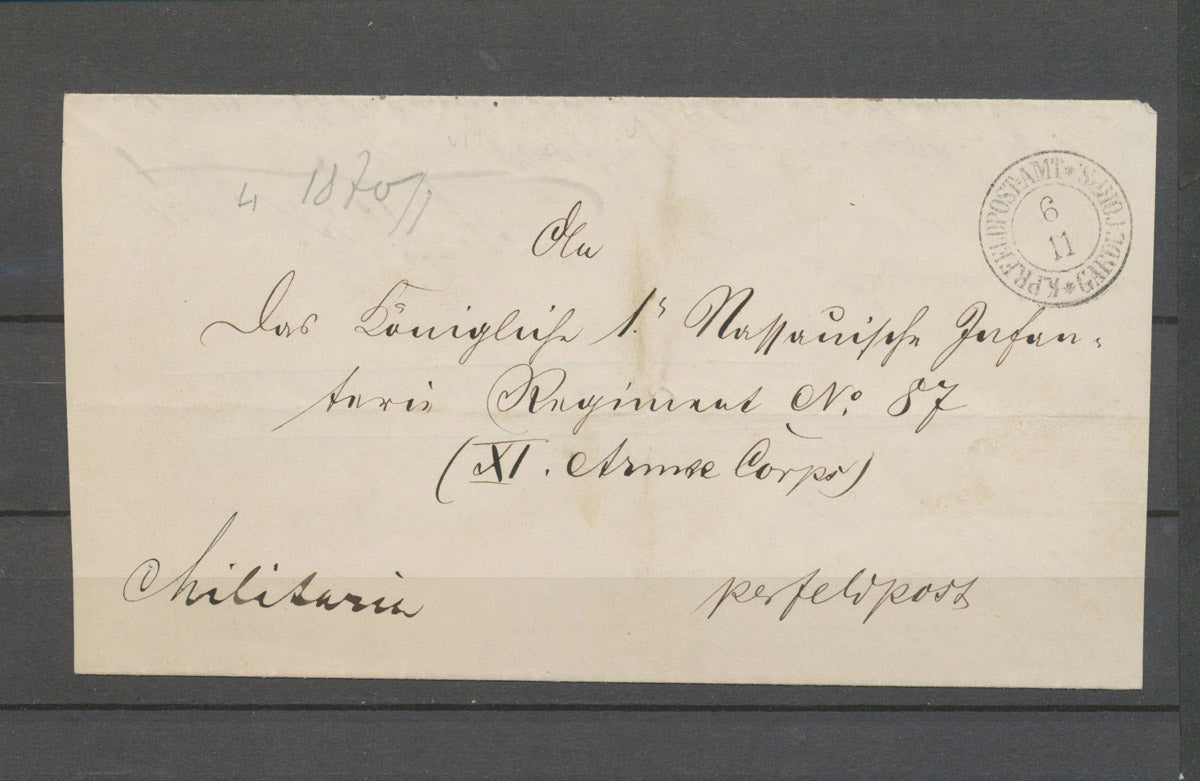 1870/1
K.PR.FELDPOST-AMT * S. DIO.J.E.GARDE *
6
11
An
Das Königliche 1. Nassauische Infan-
terie Regiment No. 87
(XI. Armee Corps)
Militaria
per feldpost